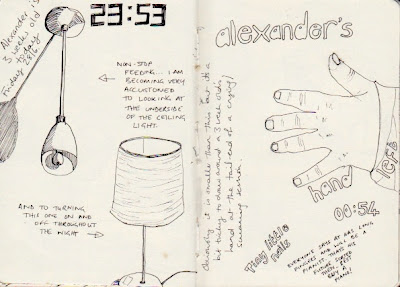 23:53
Alexander is
3 weeks old
today
Friday
28/6
NON-STOP
FEEDING... I AM
BECOMING VERY
ACCUSTOMED
TO LOOKING AT
THE UNDERSIDE
OF THE CEILING
LIGHT.
AND TO TURNING
THIS ONE ON AND
OFF THROUGHOUT
THE NIGHT
Obviously it is smaller than this but it's a
bit tricky to draw around a 3 week old's
hand at the tail end of a crying/
screaming session.
alexander's
hand
00:54
Tiny little
nails
EVERYONE SAYS HE HAS LONG
FINGERS AND WILL BE A
PIANIST. THAT'S HIS
FUTURE SORTED
THEN. BEST
BUY A
PIANO!